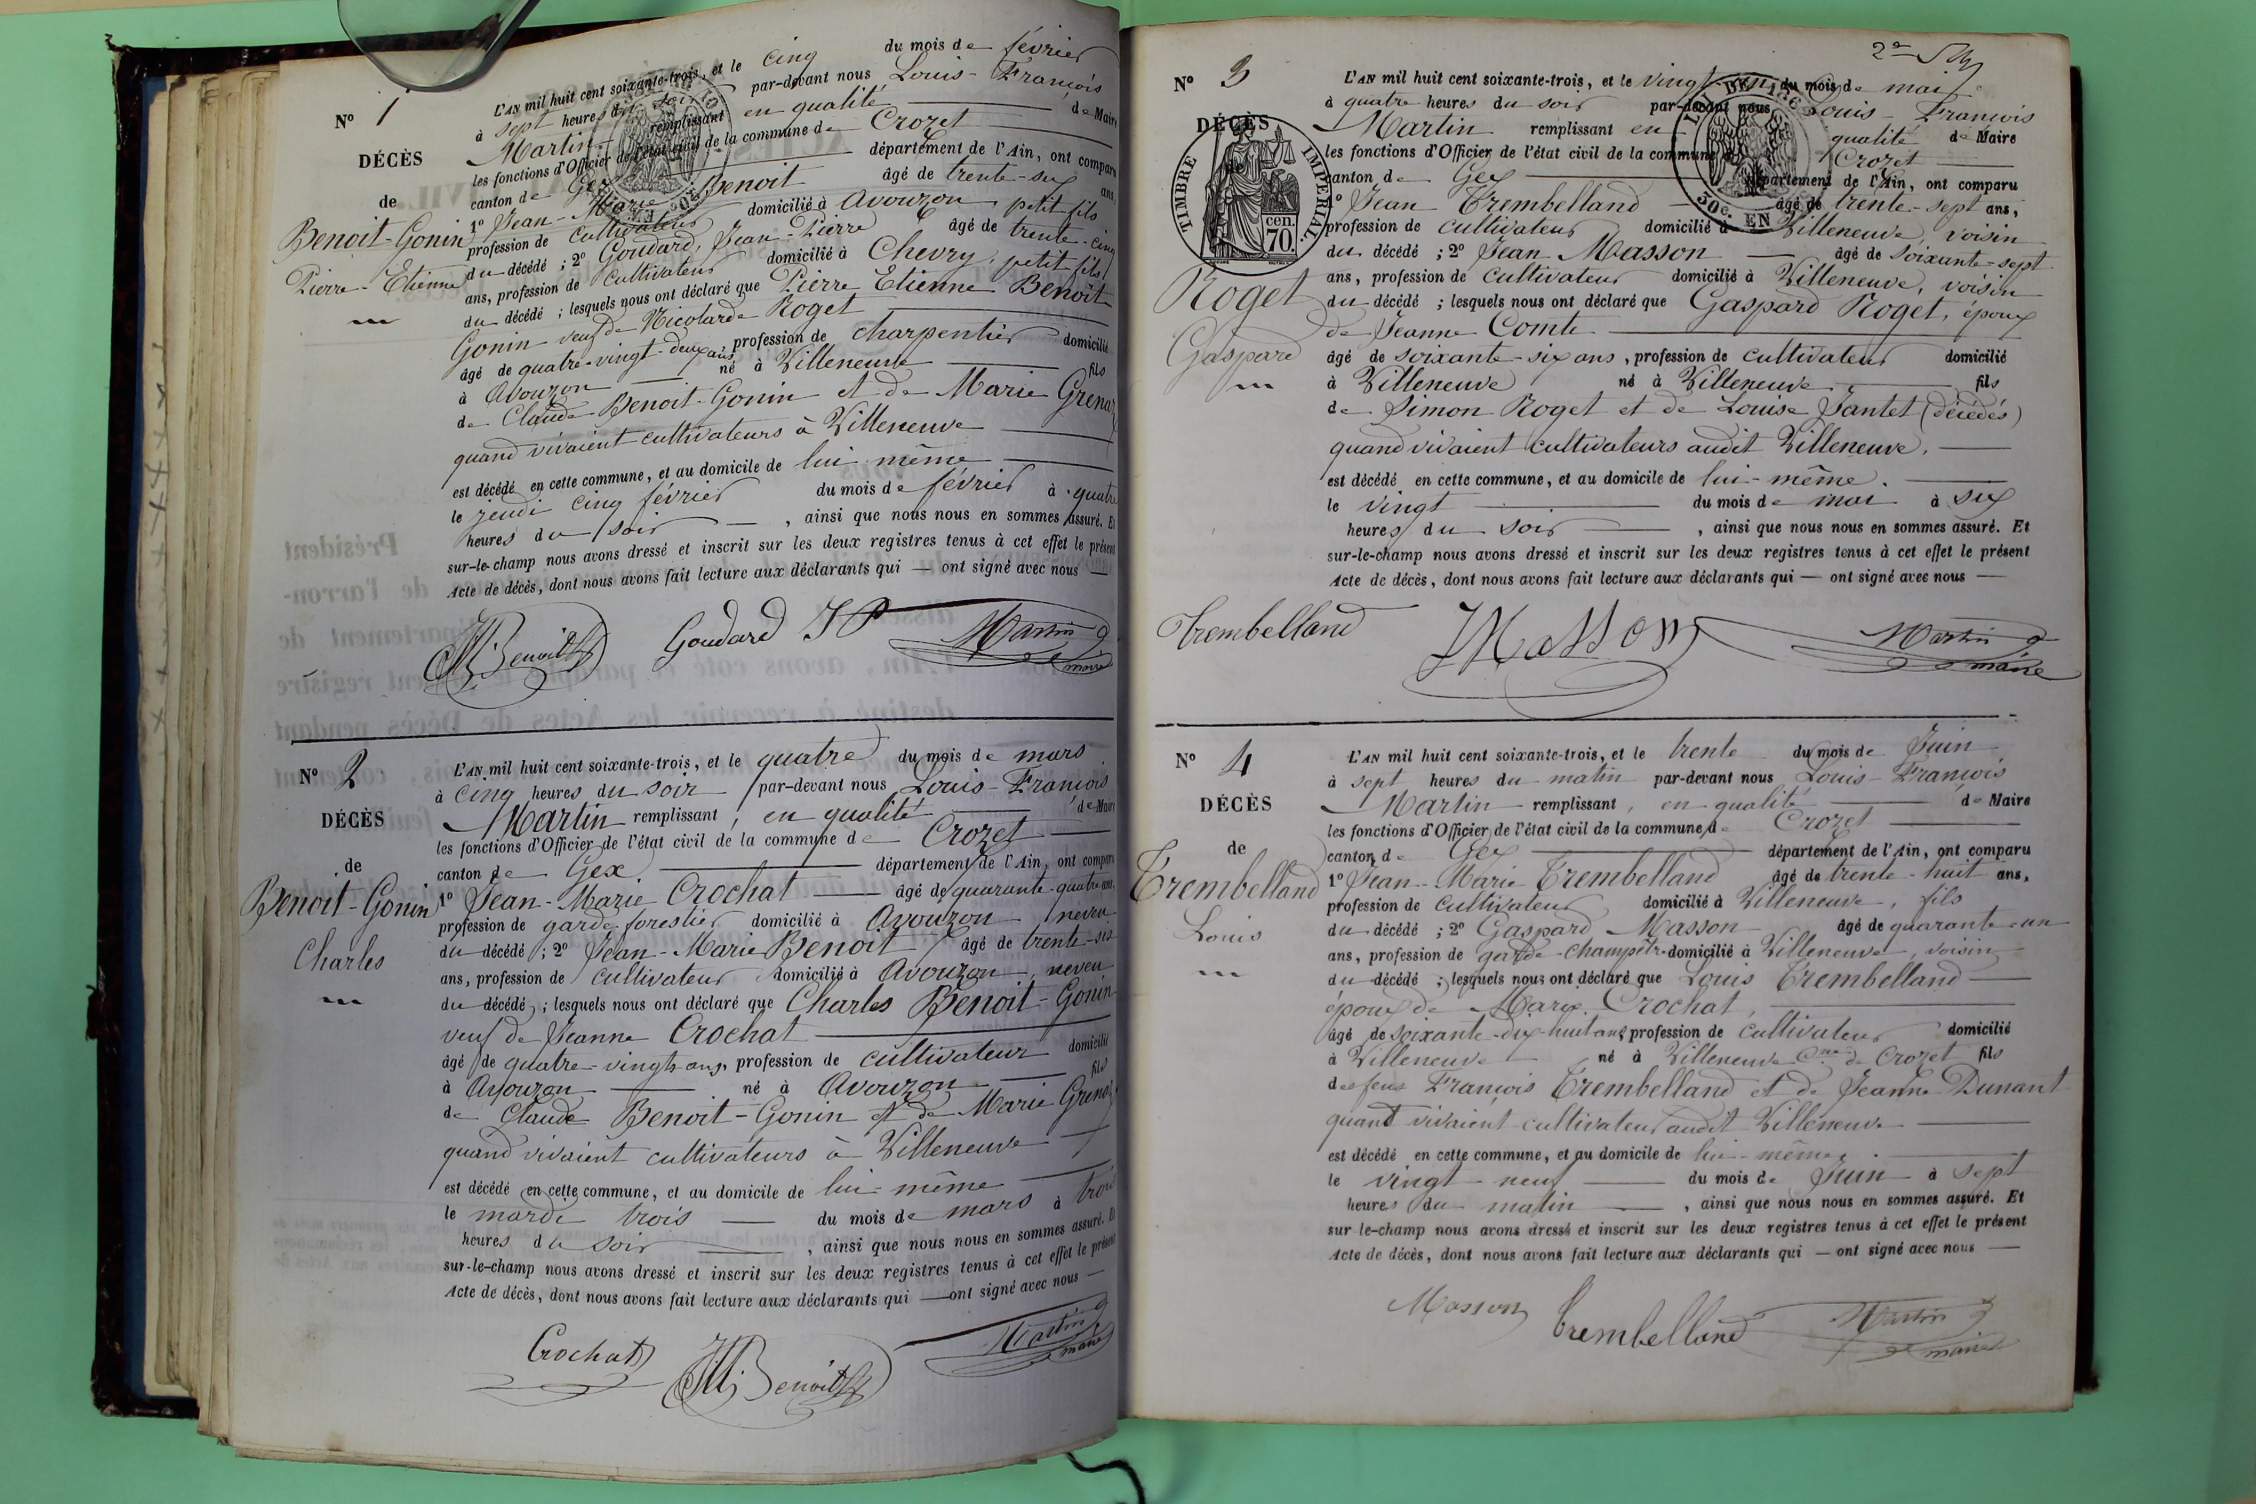 N° 1
DÉCÈS
de
Benoit-Gonin
Pierre Etienne
L'AN mil huit cent soixante-trois, et le cinq du mois de février
à sept heures du soir par-devant nous Louis-François
Martin remplissant en qualité de Maire
les fonctions d'Officier de l'état civil de la commune de Crozet
canton de Gex département de l'Ain, ont comparu
1° Jean-Marie Benoit âgé de trente-six ans,
profession de cultivateur domicilié à Avouzon, petit fils
du décédé ; 2° Goudard, Jean-Pierre âgé de trente-cinq
ans, profession de cultivateur domicilié à Chevry, petit fils
du décédé ; lesquels nous ont déclaré que Pierre Etienne Benoit
Gonin veuf de Nicolarde Roget
âgé de quatre-vingt-deux ans, profession de charpentier domicilié
à Avouzon né à Villeneuve fils
de Claude Benoit-Gonin et de Marie Grenaz
quand vivaient cultivateurs à Villeneuve
est décédé en cette commune, et au domicile de lui même
le jeudi cinq février du mois de février à quatre
heures du soir , ainsi que nous nous en sommes assuré. Et
sur-le-champ nous avons dressé et inscrit sur les deux registres tenus à cet effet le présent
Acte de décès, dont nous avons fait lecture aux déclarants qui — ont signé avec nous —
JM Benoit Goudard JP Martin
maire
N° 2
DÉCÈS
de
Benoit-Gonin
Charles
L'AN mil huit cent soixante-trois, et le quatre du mois de mars
à cinq heures du soir par-devant nous Louis-François
Martin remplissant, en qualité de Maire
les fonctions d'Officier de l'état civil de la commune de Crozet
canton de Gex département de l'Ain, ont comparu
1° Jean-Marie Crochat âgé de quarante-quatre ans,
profession de garde forestier domicilié à Avouzon neveu
du décédé ; 2° Jean-Marie Benoit âgé de trente-six
ans, profession de cultivateur domicilié à Avouzon, neveu
du décédé ; lesquels nous ont déclaré que Charles Benoit-Gonin
veuf de Jeanne Crochat
âgé de quatre-vingts ans, profession de cultivateur domicilié
à Avouzon né à Avouzon fils
de Claude Benoit-Gonin et de Marie Grenaz
quand vivaient cultivateurs à Villeneuve
est décédé en cette commune, et au domicile de lui-même
le mardi trois du mois de mars à trois
heures du soir , ainsi que nous nous en sommes assuré. Et
sur-le-champ nous avons dressé et inscrit sur les deux registres tenus à cet effet le présent
Acte de décès, dont nous avons fait lecture aux déclarants qui — ont signé avec nous —
Crochat JM Benoit Martin
maire
N° 3
DÉCÈS
TIMBRE IMPERIAL.
cen.
70.
Roget
Gaspard
L'AN mil huit cent soixante-trois, et le vingt-un du mois de mai
à quatre heures du soir par-devant nous Louis-François
Martin remplissant en qualité de Maire
les fonctions d'Officier de l'état civil de la commune de Crozet
canton de Gex département de l'Ain, ont comparu
1° Jean Trembelland âgé de trente-sept ans,
profession de cultivateur domicilié à Villeneuve, voisin
du décédé ; 2° Jean Masson âgé de soixante-sept
ans, profession de cultivateur domicilié à Villeneuve, voisin
du décédé ; lesquels nous ont déclaré que Gaspard Roget, époux
de Jeanne Comte
âgé de soixante-six ans, profession de cultivateur domicilié
à Villeneuve né à Villeneuve fils
de Simon Roget et de Louise Jantet (décédés)
quand vivaient cultivateurs audit Villeneuve.
est décédé en cette commune, et au domicile de lui-même.
le vingt du mois de mai à six
heures du soir , ainsi que nous nous en sommes assuré. Et
sur-le-champ nous avons dressé et inscrit sur les deux registres tenus à cet effet le présent
Acte de décès, dont nous avons fait lecture aux déclarants qui — ont signé avec nous —
Trembelland JMasson Martin
maire
N° 4
DÉCÈS
de
Trembelland
Louis
L'AN mil huit cent soixante-trois, et le trente du mois de Juin
à sept heures du matin par-devant nous Louis-François
Martin remplissant, en qualité de Maire
les fonctions d'Officier de l'état civil de la commune de Crozet
canton de Gex département de l'Ain, ont comparu
1° Jean-Marie Trembelland âgé de trente-huit ans,
profession de cultivateur domicilié à Villeneuve, fils
du décédé ; 2° Gaspard Masson âgé de quarante-un
ans, profession de garde-champêtre domicilié à Villeneuve, voisin
du décédé ; lesquels nous ont déclaré que Louis Trembelland
époux de Marie Crochat,
âgé de soixante-dix-huit ans, profession de cultivateur domicilié
à Villeneuve né à Villeneuve Cne de Crozet fils
des feus François Trembelland et de Jeanne Dunant
quand vivaient cultivateurs audit Villeneuve
est décédé en cette commune, et au domicile de lui-même,
le vingt-neuf du mois de Juin à sept
heures du matin , ainsi que nous nous en sommes assuré. Et
sur-le-champ nous avons dressé et inscrit sur les deux registres tenus à cet effet le présent
Acte de décès, dont nous avons fait lecture aux déclarants qui — ont signé avec nous —
Masson Trembelland Martin
maire